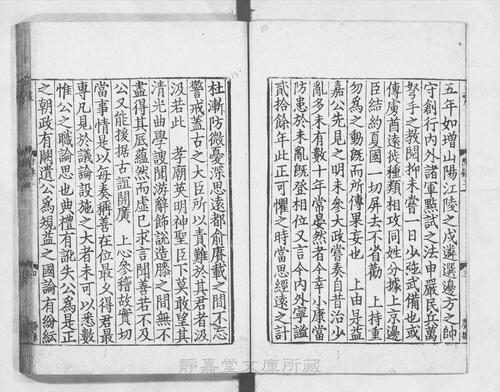 五年如增山陽江陵之戍遴選邊方之帥
守創行内外諸軍㸃試之法申嚴民兵萬
弩手之教閲抑未嘗一日少弛武備也或
傳虜酋遠徙種類相攻同姓分據上京邊
臣結約夏國一切屏去不省勸 上持重
勿為之動旣而所傳果妄也 上由是益
嘉公先見之明未參大政嘗奏自昔治少
亂多未有數十年當晏然者今幸小康當
防患於未亂旣登相位又言今内外寧謐
貳拾餘年此正可懼之時當思經遠之計
杜漸防微憂深思遠都俞賡載之間不忘
警戒蓋古之大臣所以責難於其君者汲
汲若此 孝廟英明神聖臣下莫敢望其
清光曲學謏聞游辭飾説造膝之間無不
盡得其底蘊然而虚已求言聞善若不及
公又能援據古誼開廣 上心參稽故實切
當事情是以每奏稱善在位最久得君最
專凡見於議論設施之大者未可以悉數
惟公之職論思也典禮有訛失公爲是正
之朝政有闕遺公爲規益之國論有紛紜
靜嘉堂文庫所藏